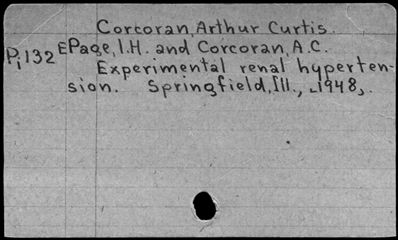 Corcoran, Arthur Curtis.
Pi132 EPage, I.H. and Corcoran, A.C.
Experimental renal hyperten-
sion. Springfield, Ill., [1948].